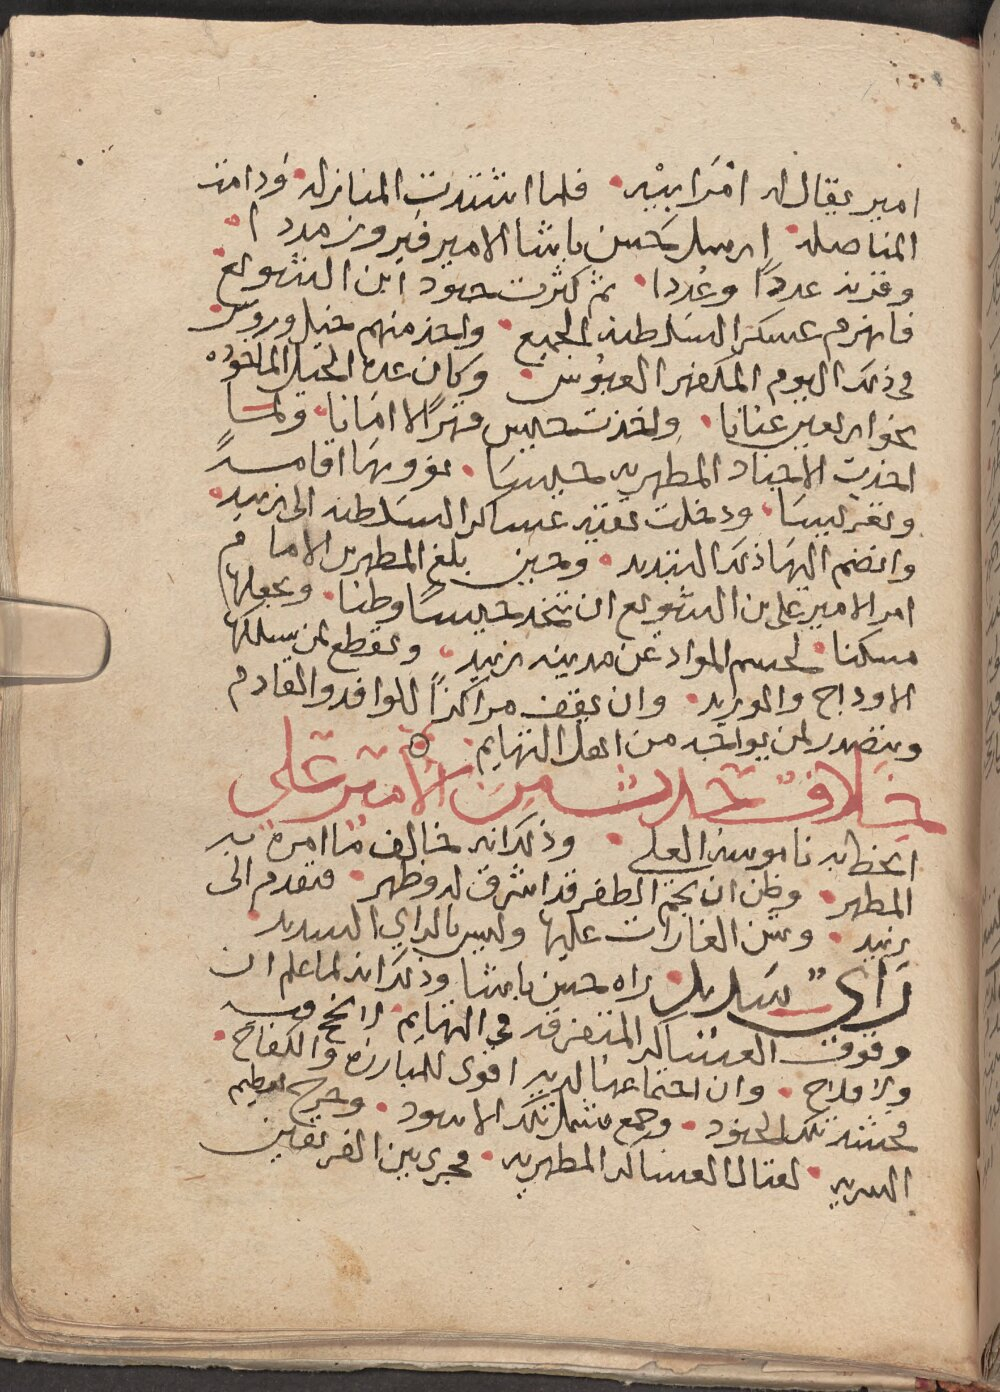 امير يقال له اقرابيه فلما اشتدت المنازله ودامت
المناصله ارسل حسن باشا الامير فيروز مددا
وفزند عددًا وعُددا ثم كثرت جنود ابن الشويع
فانهزم عسكر السلطنه الجميع واخذ منهم خيل وروس
في ذلك اليوم المكفهر العبوس وكان عدة الخيل الماخوذه
بخواربعين عنانا واخذت حيس قهرًا لا امانا ولما
اخذت الاجناد المطهريه حيسا
ودخلت بقية عساكر السلطنه الى زبيد
وانضم اليها ذلك التبديد وحين بلغ المطهر بن الامام
امر الامير علي بن الشويع ان يتخذ حيسًا وطنا ويجعلها
مسكنا لحسم المواد عن مدينه زبيد ويقطع لمن يسلكها
الاوداج والوريد وان يقف مراكزًا للوافد والقادم
ويتصدر لمن يواجه من اهل التهايم
خلاف حدث من الامير علي
انحط به ناموسه العلي وذلك انه خالف ما امره به
المطهر وظن ان نجم الظفر قد اشرق له وظهر فتقدم الى
زبيد وشن الغارات عليها وليس بالراي السديد
راي سديد راه حسن باشا وذلك انه لما علم ان
وقوف العساكر المتفرقه في التهايم لا نجح فيه
ولا فلاح وان اجتماعها لديه اقوى للمبارزه والكفاح
فحشد تلك الجنود وجمع شمل تلك الاسود وخرج بعظيم
السريه لقتال العساكر المطهريه فجرى بين الفريقين